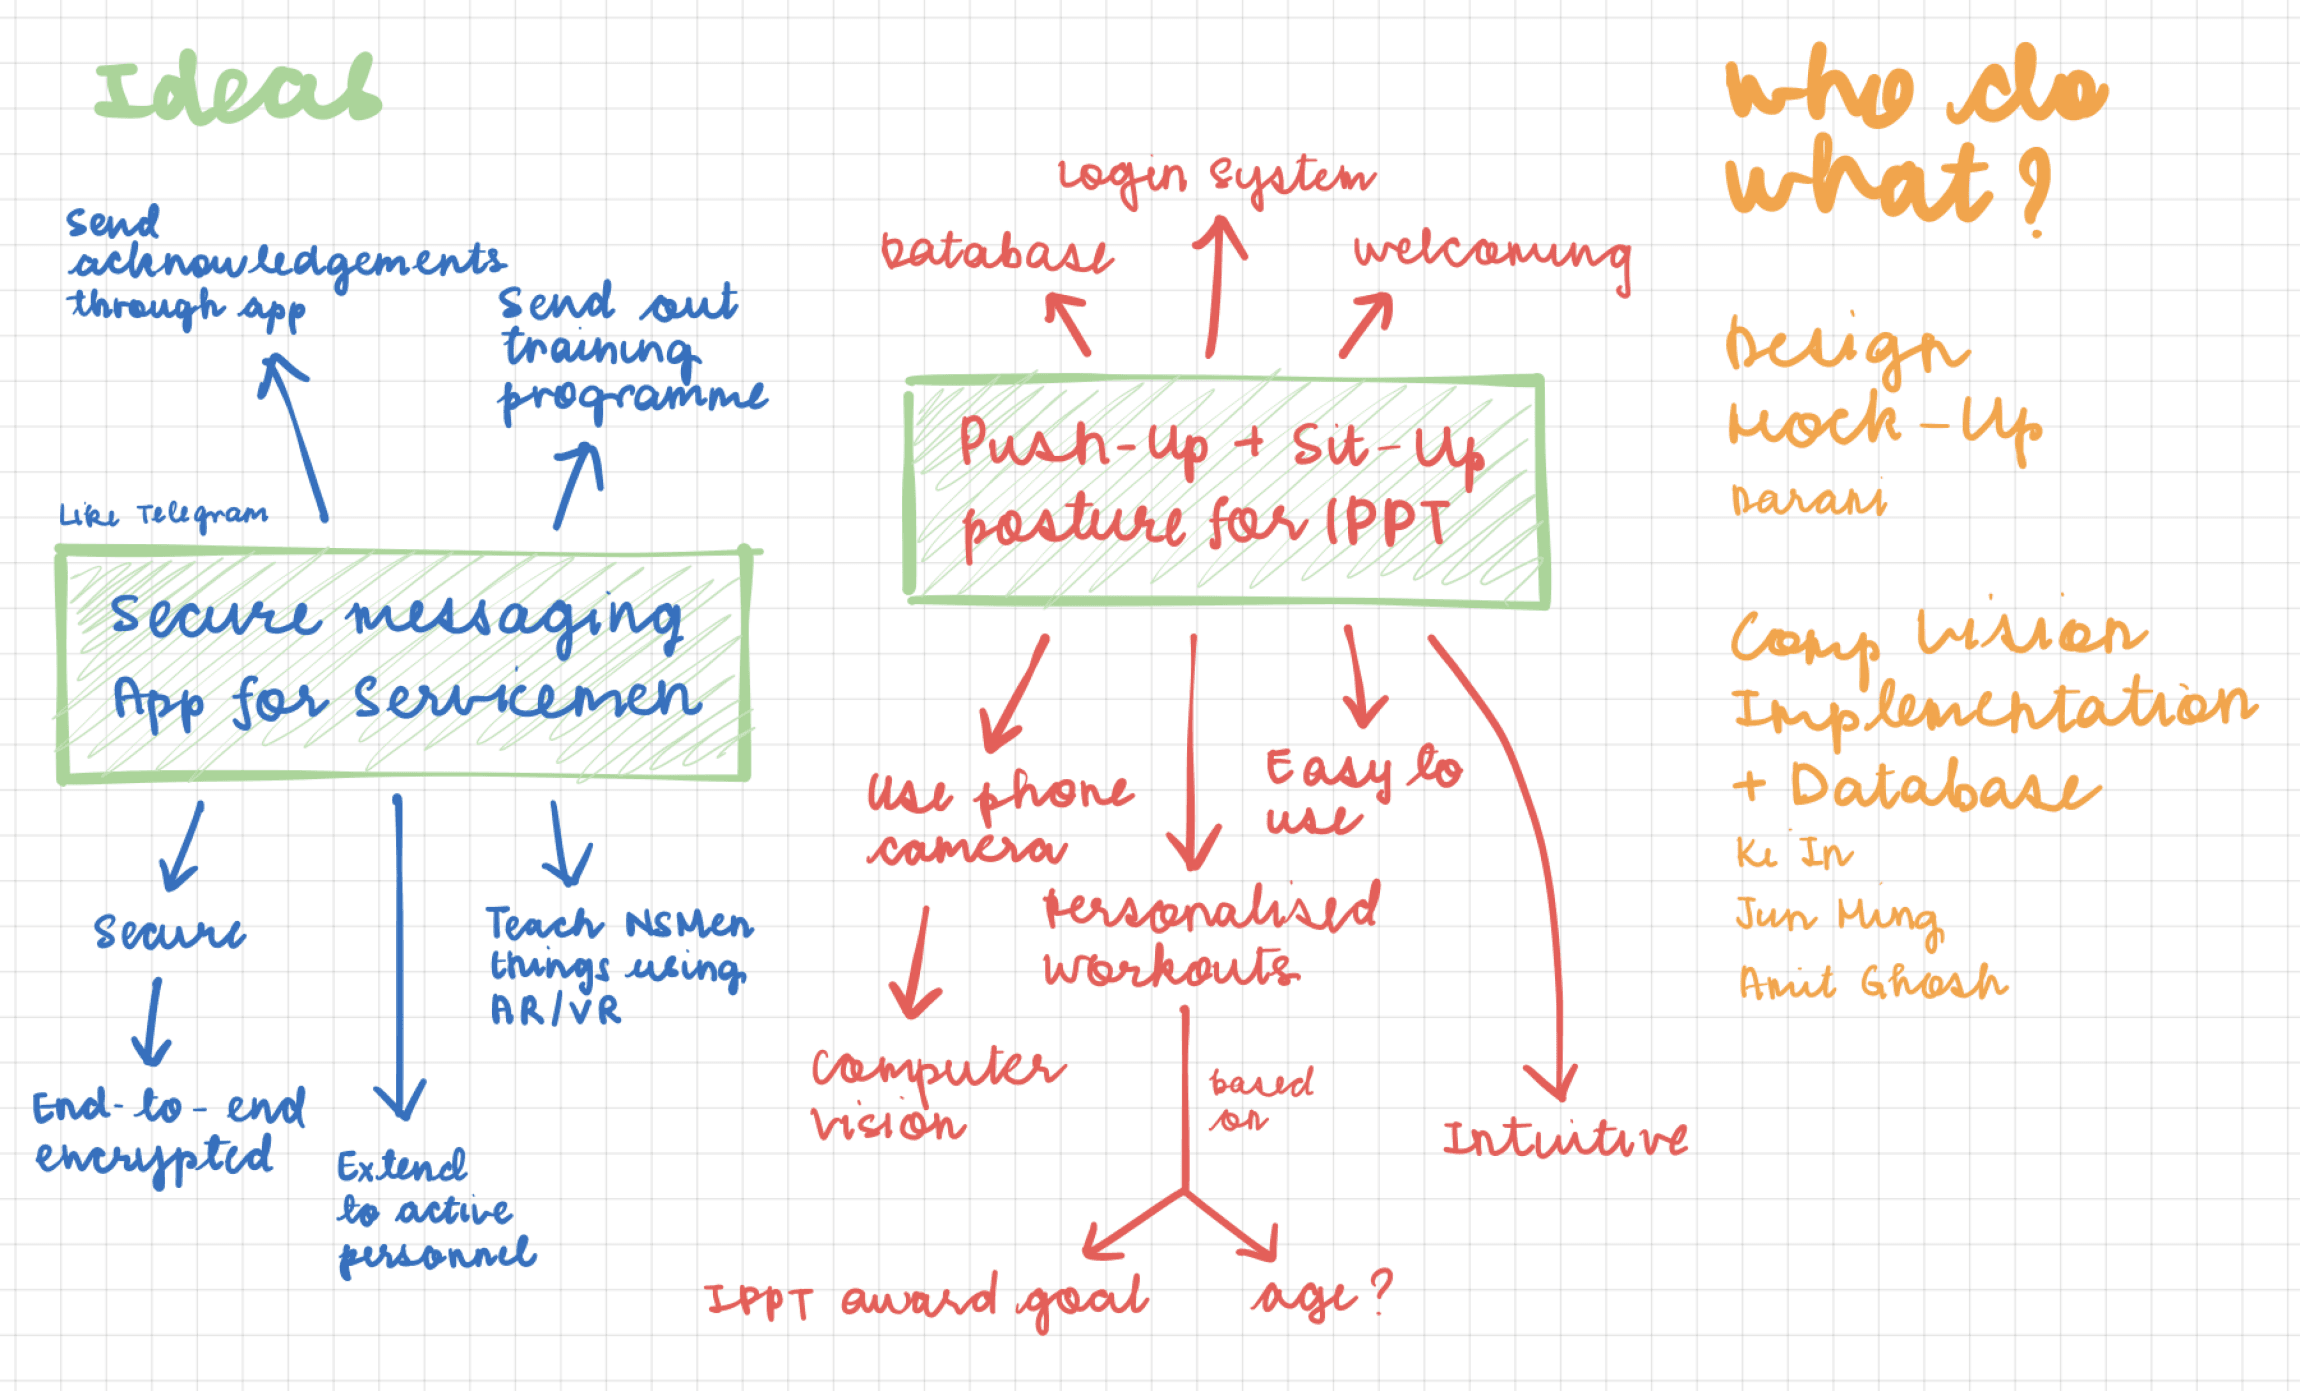 Ideal
Send
acknowledgements
through app
Send out
training
programme
Like Telegram
Secure messaging
App for Servicemen
Secure
End-to-end
encrypted
Extend
to active
personnel
Teach NSMen
things using
AR/VR
Database
Login System
Welcoming
Push-Up + Sit-Up
posture for IPPT
Use phone
camera
Computer
vision
Personalised
workouts
based
on
IPPT award goal
age?
Easy to
use
Intuitive
Who do
what?
Design
Mock-Up
Darani
Comp Vision
Implementation
+ Database
Ke In
Jun Ming
Amit Ghosh